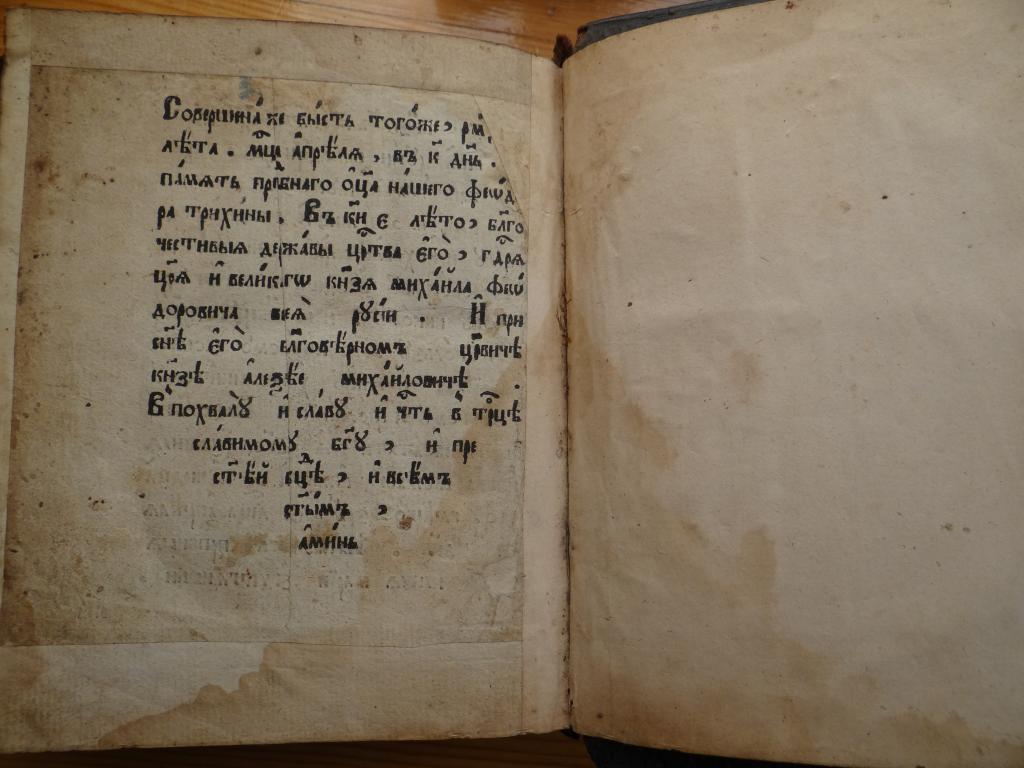 Совершена́ же бы́сть тогѡ́же, рм҃
лѣ́та . мц҃а а҆прѣ́лѧ , въ к҃ дн҃ь .
па́мѧть прпⷣбнаго ѻ҆ц҃а на́шего ѳеѡ́д
ра трихи́ны . Въ к҃и є лѣ́то, бл҃го
чести́выѧ держа́вы црⷭ҇тва є҆гѡ̀, гдⷭ҇рѧ
цр҃ѧ и҆ вели́кагѡ кн҃зѧ михаи́ла ѳеѡ́
доровича всеѧ̀ русі́и . И҆ при
сн҃ѣ є҆гѡ̀ бл҃говѣ́рномъ цр҃вичѣ
кн҃зѣ а҆леѯѣ́е миха́йловичѣ .
В̾ похвалꙋ̀ и҆ сла́вꙋ и҆ чⷭ҇ть в̾ трⷪ҇цѣ
сла́вимомꙋ бг҃ꙋ , и҆ пре
ст҃ѣ́й бцⷣѣ , и҆ всѣ́мъ
ст҃ы́мъ ,
а҆ми́нь